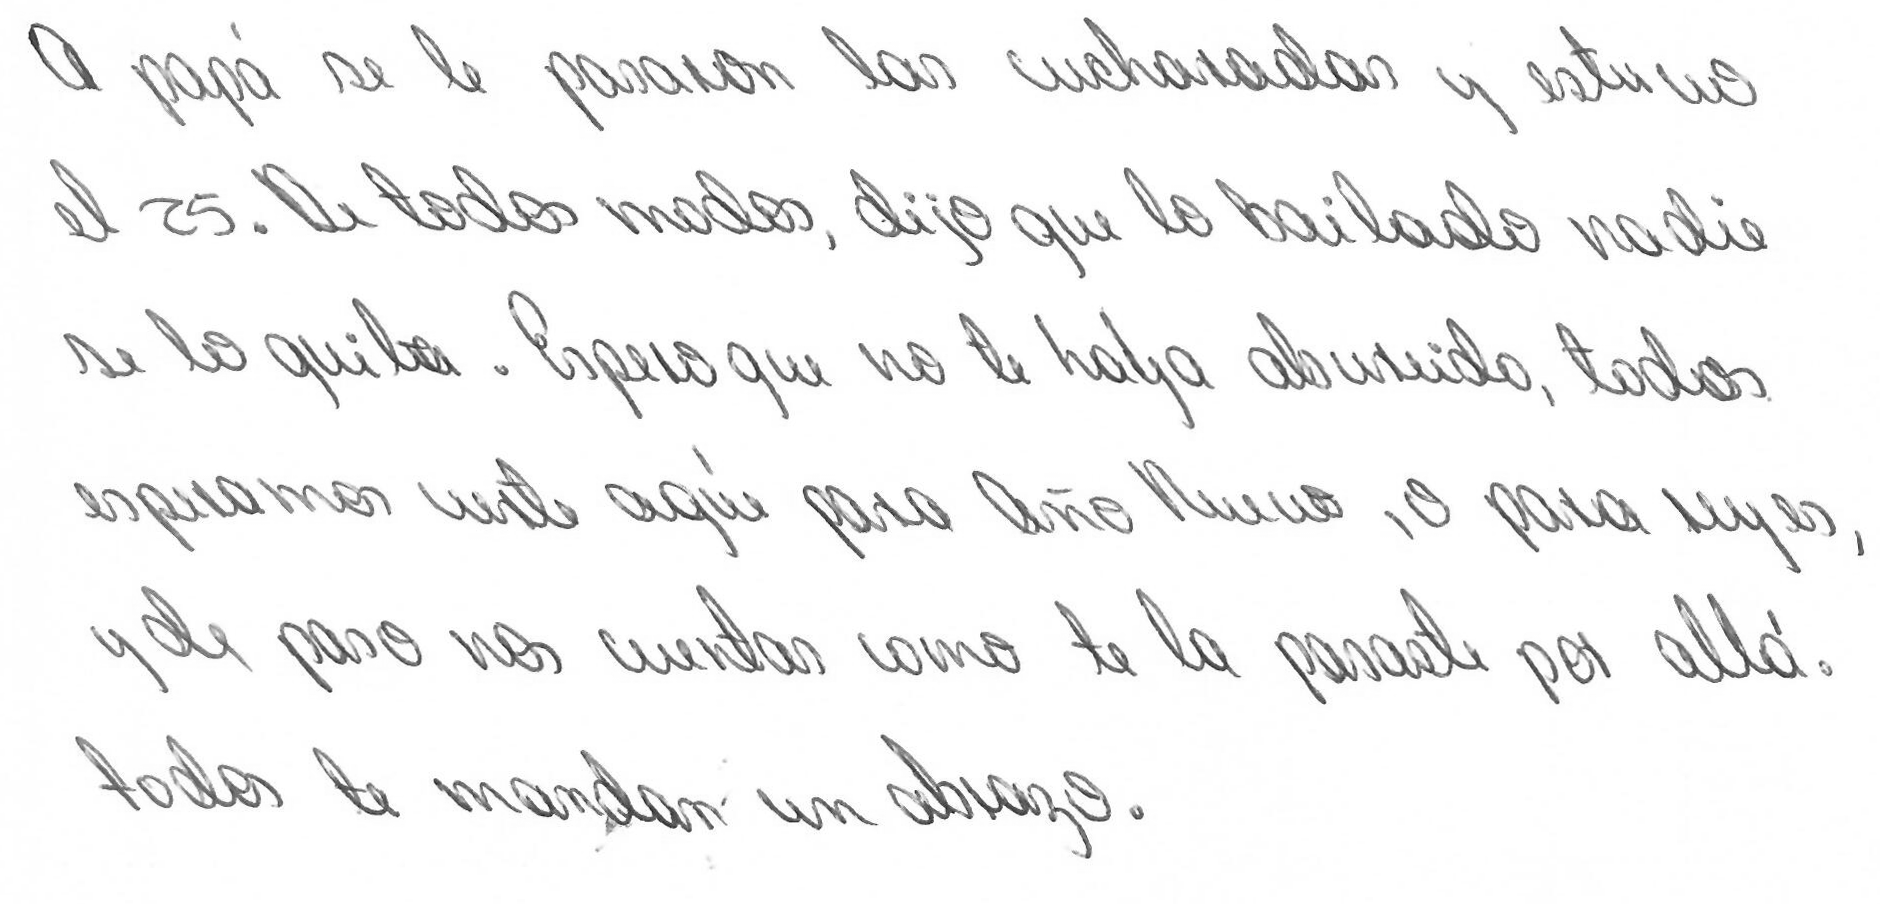 A papá se le pasaron las cucharadas y estuvo
el 25. De todos modos, dijo que lo bailado nadie
se lo quita. Espero que no te haya aburrido, todos
esperamos verte aquí para Año Nuevo, o para reyes,
y de paso nos cuentas como te la pasaste por allá.
todos te mandan un abrazo.